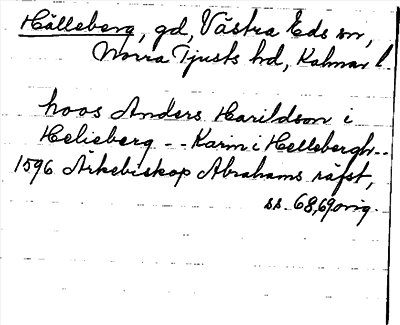 Hälleberg, gd, Västra Eds sn,
Norra Tjusts hd, Kalmar l.
hoos Anders Harildson i
Helieberg -- Karin i Hellebergh--
1596 Ärkebiskop Abrahams räfst,
ss. 68,69 orig.